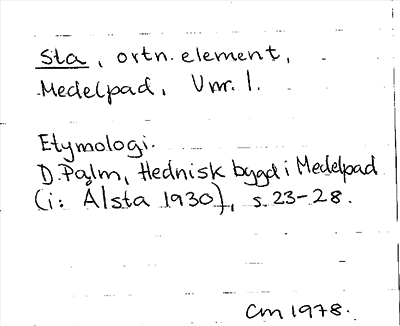 Sta, ortn. element,
Medelpad, Vnr. 1.
Etymologi.
D. Palm, Hednisk bygd i Medelpad
(i: Ålsta 1930), s. 23-28.
CM 1978.